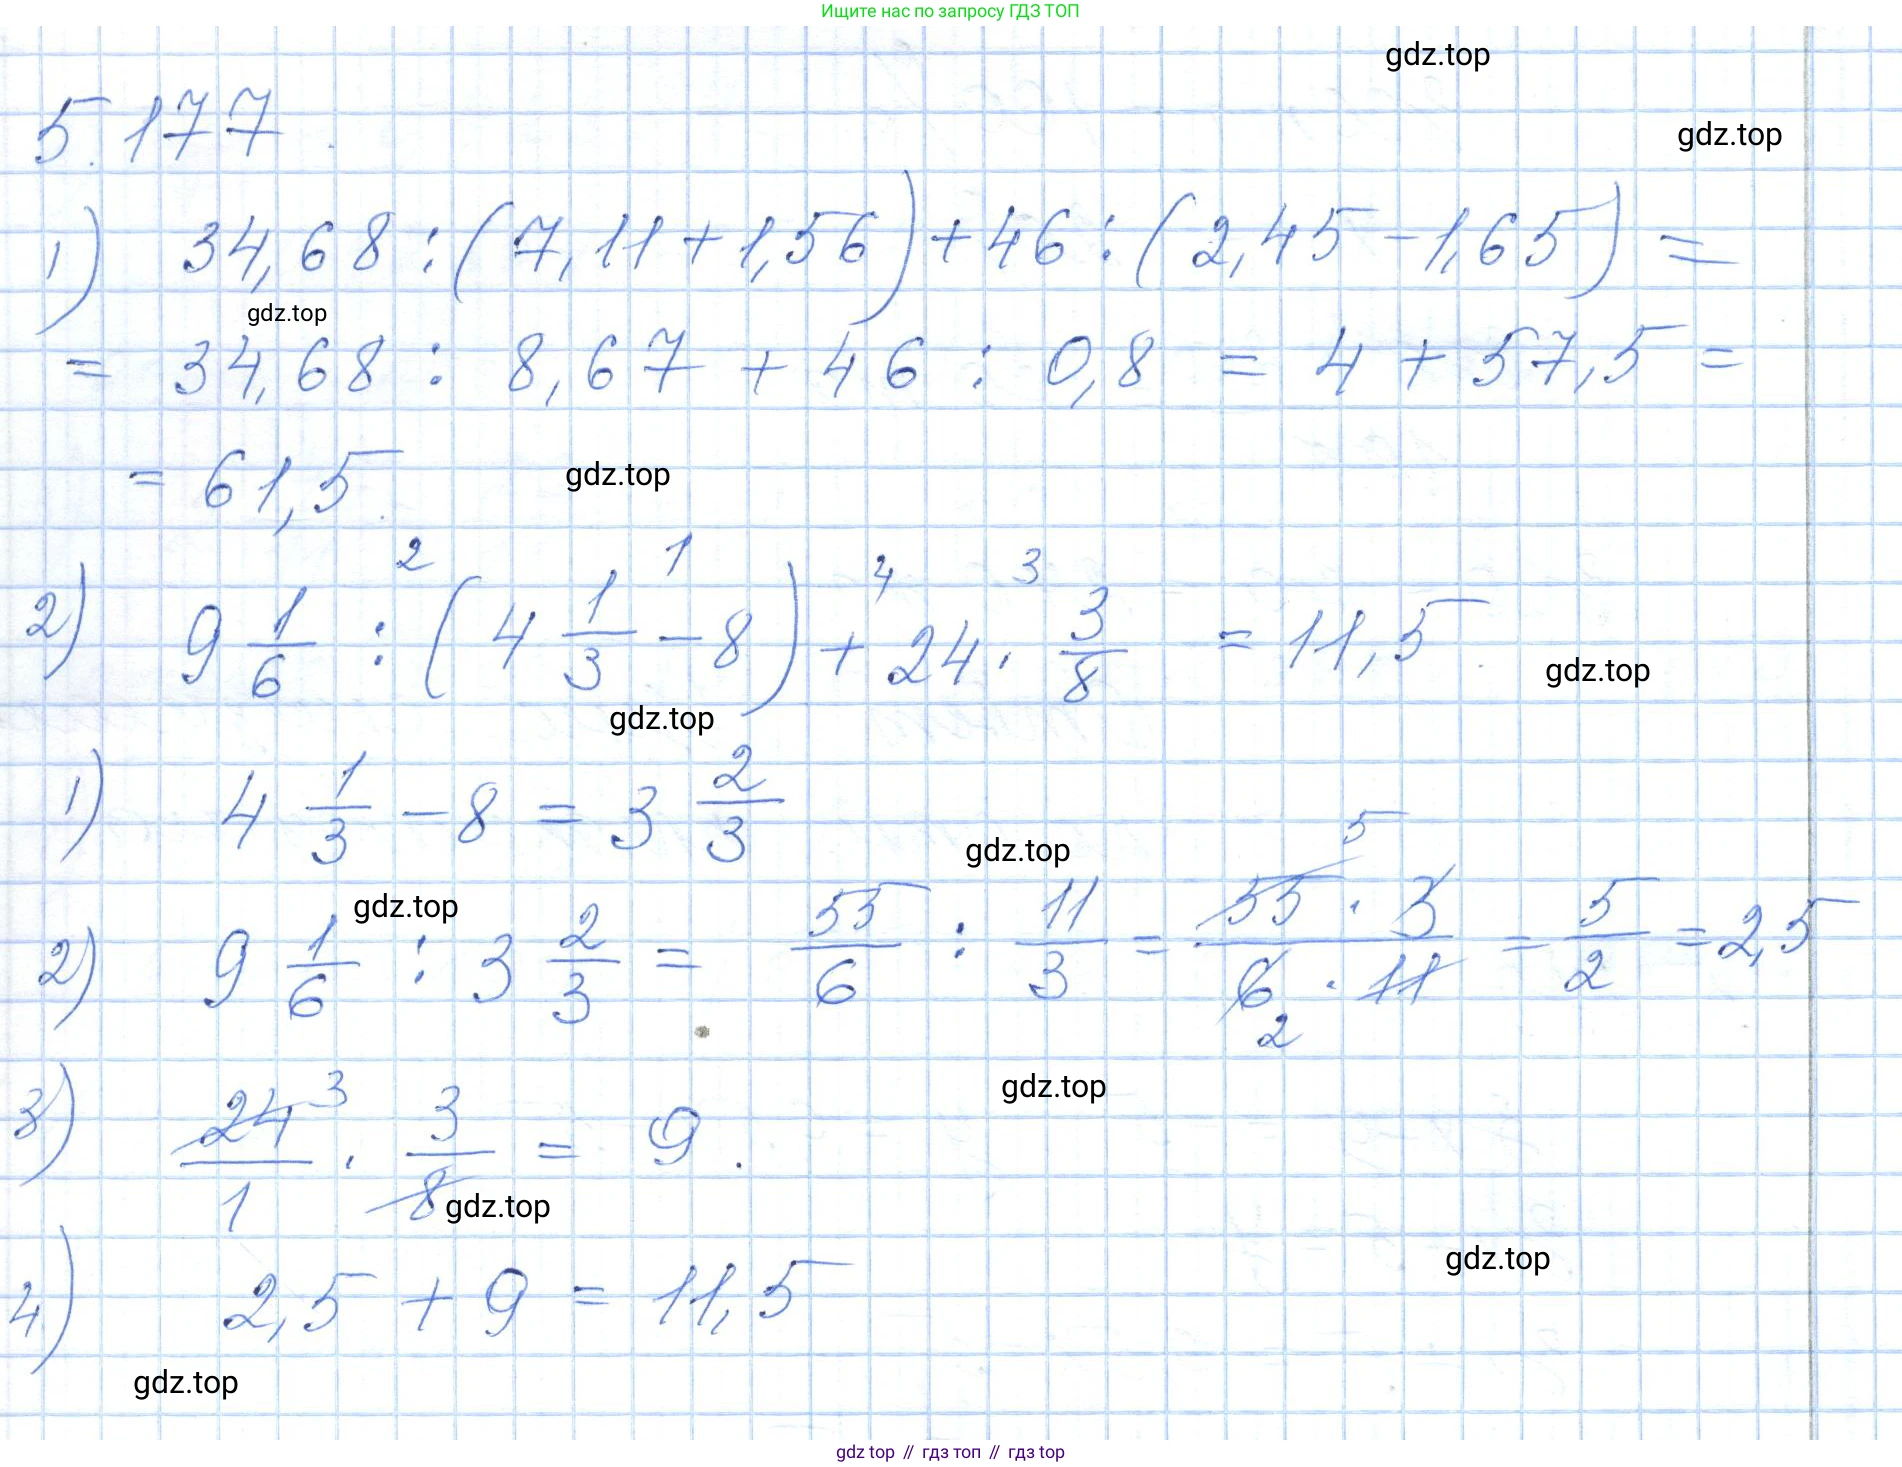 Ищите нас по запросу ГДЗ ТОП
gdz.top
5.177.
gdz.top
1) 34,68 : (7,11 + 1,56) + 46 : (2,45 - 1,65) =
gdz.top
= 34,68 : 8,67 + 46 : 0,8 = 4 + 57,5 =
= 61,5.
gdz.top
2 1 4 3
2) 9 1/6 : (4 1/3 - 8) + 24 · 3/8 = 11,5.
gdz.top
gdz.top
1) 4 1/3 - 8 = 3 2/3
gdz.top
gdz.top
2) 9 1/6 : 3 2/3 = 55/6 : 11/3 = 55 5 · 3/6 2 · 11 = 5/2 = 2,5
gdz.top
3) 24 3/1 · 3/8 = 9.
gdz.top
gdz.top
4) 2,5 + 9 = 11,5
gdz.top
gdz top // гдз топ // гдз top